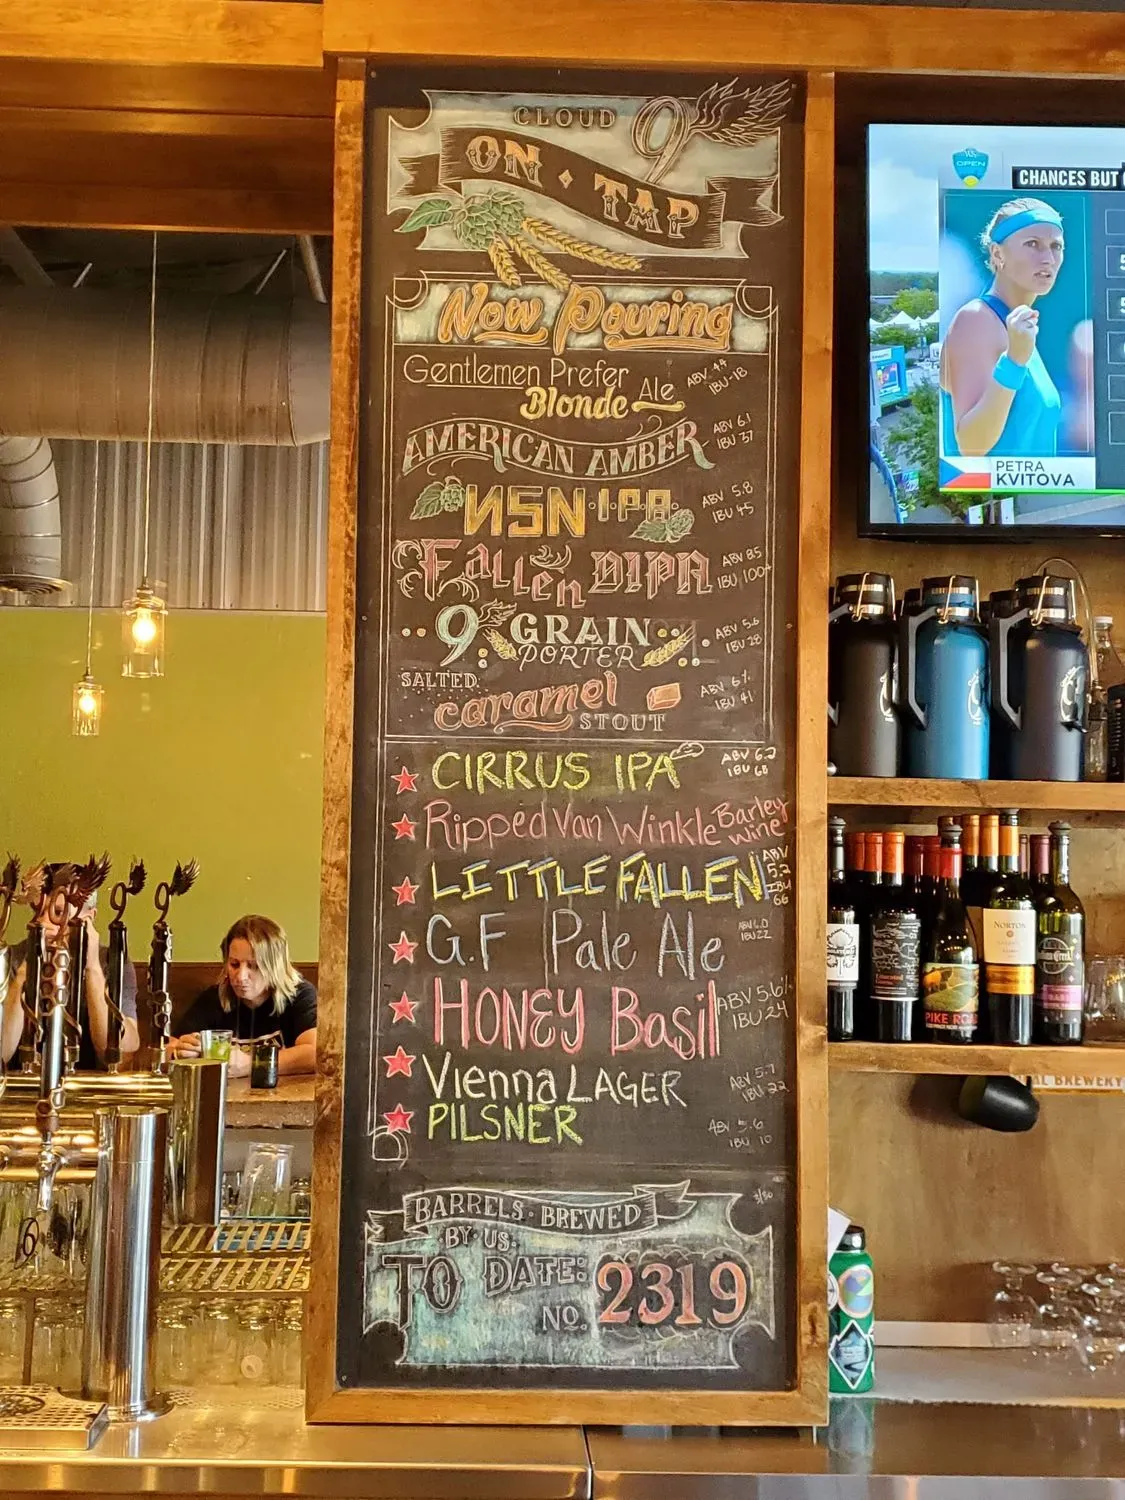 CLOUD 9
ON • TAP
Now Pouring
Gentlemen Prefer
Blonde Ale
ABV 4.4
IBU-18
AMERICAN AMBER
ABV 6.1
IBU 37
NSN I.P.A.
ABV 5.8
IBU 45
Fallen DIPA
ABV 8.5
IBU 100+
9 GRAIN
PORTER
ABV 5.6
IBU 28
SALTED
caramel
STOUT
ABV 6%
IBU 41
CIRRUS IPA
ABV 6.2
IBU 68
Ripped Van Winkle Barley
Wine
LITTLE FALLEN
ABV
5.2
IBU
66
G.F Pale Ale
IBU 22
HONEY Basil
ABV 5.6%
IBU 24
Vienna LAGER
ABV 5.7
IBU 22
PILSNER
ABV 5.6
IBU 10
BARRELS • BREWED
• BY • US •
TO DATE:
NO. 2319
OPEN
CHANCES BUT
PETRA
KVITOVA
NORTON
PIKE RO
AL BREWERY